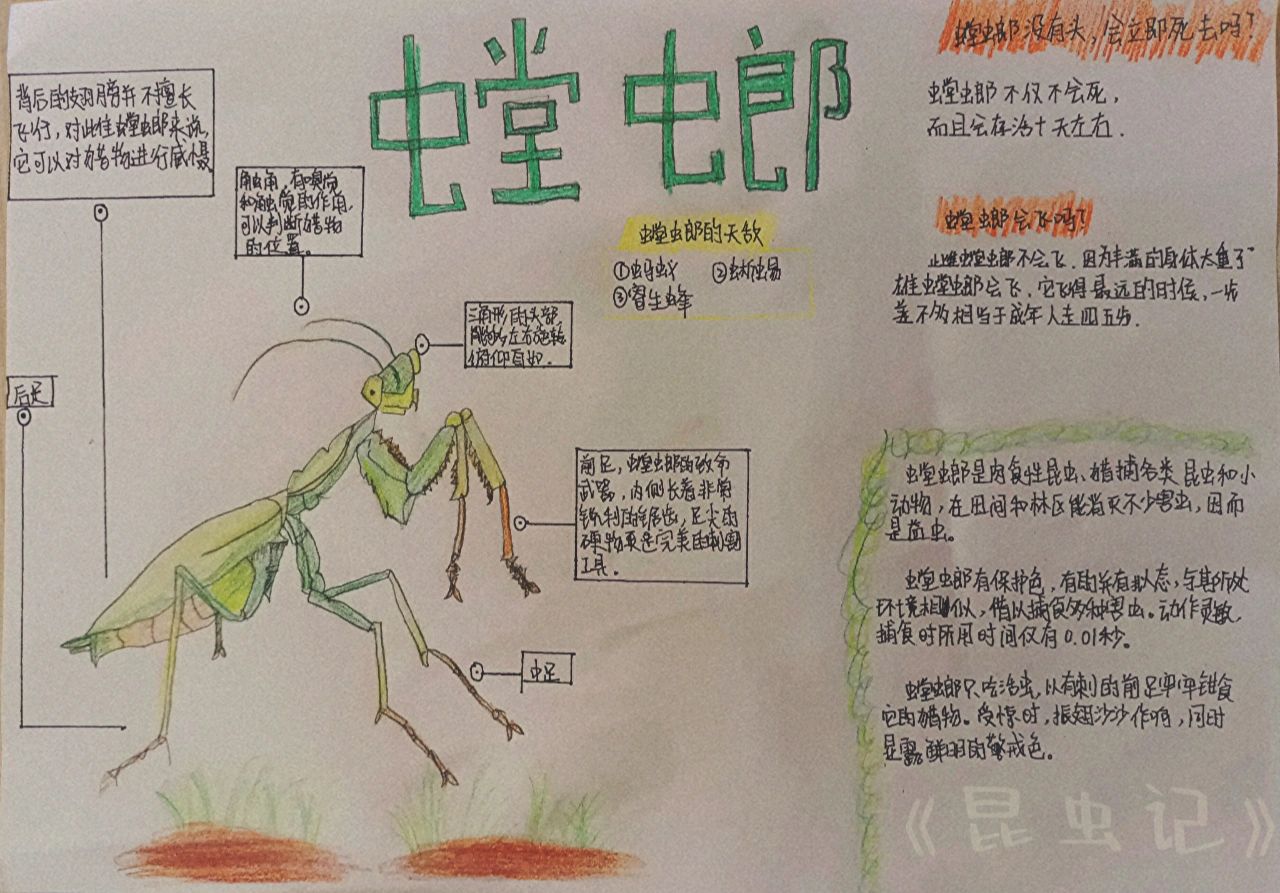 螳螂
背后的翅膀并不擅长
飞行，对此雄螳螂来说，
它可以对猎物进行威慑
触角，有嗅觉
和触觉的作用，
可以判断猎物
的位置。
三角形的头部，
能够左右旋转
俯仰自如.
后足
前足，螳螂的致命
武器，内侧长着非常
锐利的锯齿，足尖的
硬物更是完美的刺割
工具。
虫足
螳螂的天敌
①蚂蚁 ②蜥蜴
③寄生蜂
螳螂没有头，会立即死去吗？
螳螂不仅不会死，
而且会存活十天左右.
螳螂会飞吗？
雌螳螂不会飞，因为丰满的身体太重了
雄螳螂会飞，它飞得最远的时候，一步
差不多相当于成年人走四五步.
螳螂是肉食性昆虫、猎捕各类昆虫和小
动物，在田间和林区能消灭不少害虫，因而
是益虫。
螳螂有保护色，有的并有拟态，与其所处
环境相似，借以捕食多种害虫。动作灵敏，
捕食时所用时间仅有0.01秒。
螳螂只吃活虫，以有刺的前足牢牢钳食
它的猎物。受惊时，振翅沙沙作响，同时
显露鲜明的警戒色。
《昆虫记》